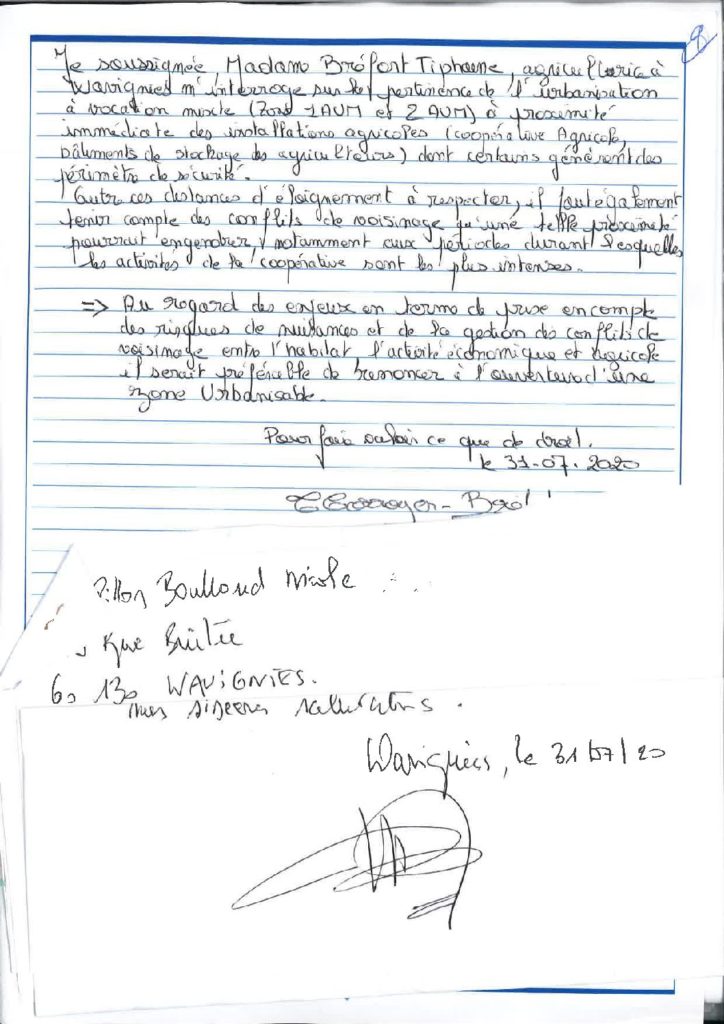 8
Je soussignée Madame Bréfort Tiphaine, agricultrice à
Wavignies m'interroge sur la pertinence de l'urbanisation
à vocation mixte (Zone 1AUM et 2AUM) à proximité
immédiate des installations agricoles (coopérative Agricole,
bâtiments de stockage des agriculteurs) dont certains génèrent des
périmètre de sécurité.
Outre ces distances d'éloignement à respecter, il faut également
tenir compte des conflits de voisinage qu'une telle proximité
pourrait engendrer, notamment aux périodes durant lesquelles
les activités de la coopérative sont les plus intenses.
=> Au regard des enjeux en terme de prise en compte
des risques de nuisances et de la gestion des conflits de
voisinage entre l'habitat, l'activité économique et agricole
il serait préférable de renoncer à l'ouverture d'une
zone Urbanisable.
Pour faire valoir ce que de droit.
le 31-07-2020
Boulloud Nicole
Rue
60 130 WAVIGNIES.
mes sincères salutations.
Wavignies, le 31/07/20